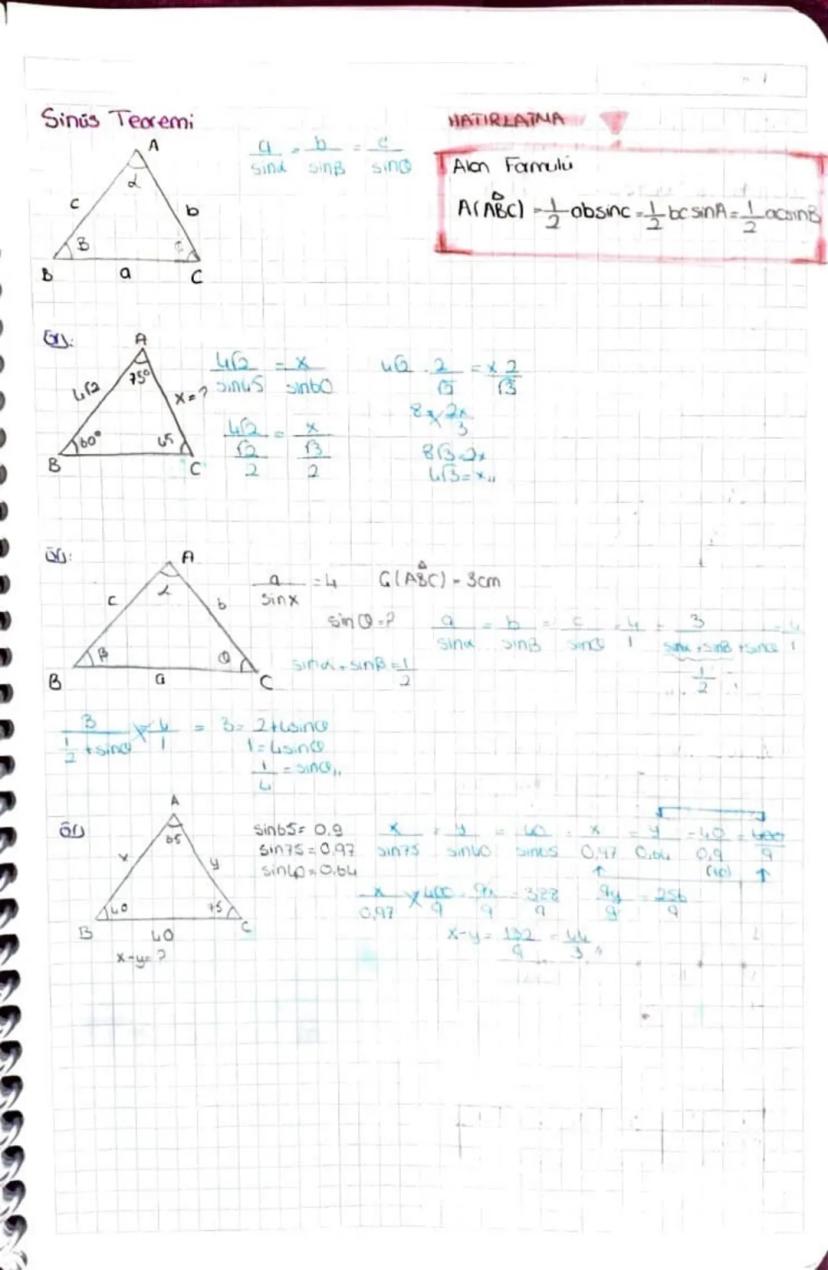 Sinüs Teoremi
A
α
c
b
B
B
C
a
a/sinα = b/sinβ = c/sinθ
HATIRLATMA
Alan Formülü
A(ABC) = 1/2 absinc = 1/2 bc sinA = 1/2 acsinB
Ör:
A
75°
4√2
x=?
60°
45
B
C
4√2/sin45 = x/sin60
4√2/(√2/2) = x/(√3/2)
4√2 · 2/√2 = x · 2/√3
8√3=2x
4√3=x
Ör:
A
α
c
b
β
θ
B
a
C
a/sinx = 4
Ç(ABC) = 3cm
sinθ=?
sinα+sinβ=1/2
a/sinα = b/sinβ = c/sinθ = 4/1 = 3/(sinα+sinβ+sinθ) = 4/1
1/2
3/(1/2+sinθ) = 4/1 = 3=2+4sinθ
1=4sinθ
1/4=sinθ
Ör
A
65
x
y
40
75
B
C
40
x-y=?
sin65=0.9
sin75=0,97
sin40=0,64
x/sin75 = y/sin40 = 40/sin65 = x/0,97 = y/0,64 = 40/0,9 = 400/9
(10)
x/0,97 = 400/9 9x/9 = 388/9 9y/9 = 256/9
x-y = 132/9 = 44/3